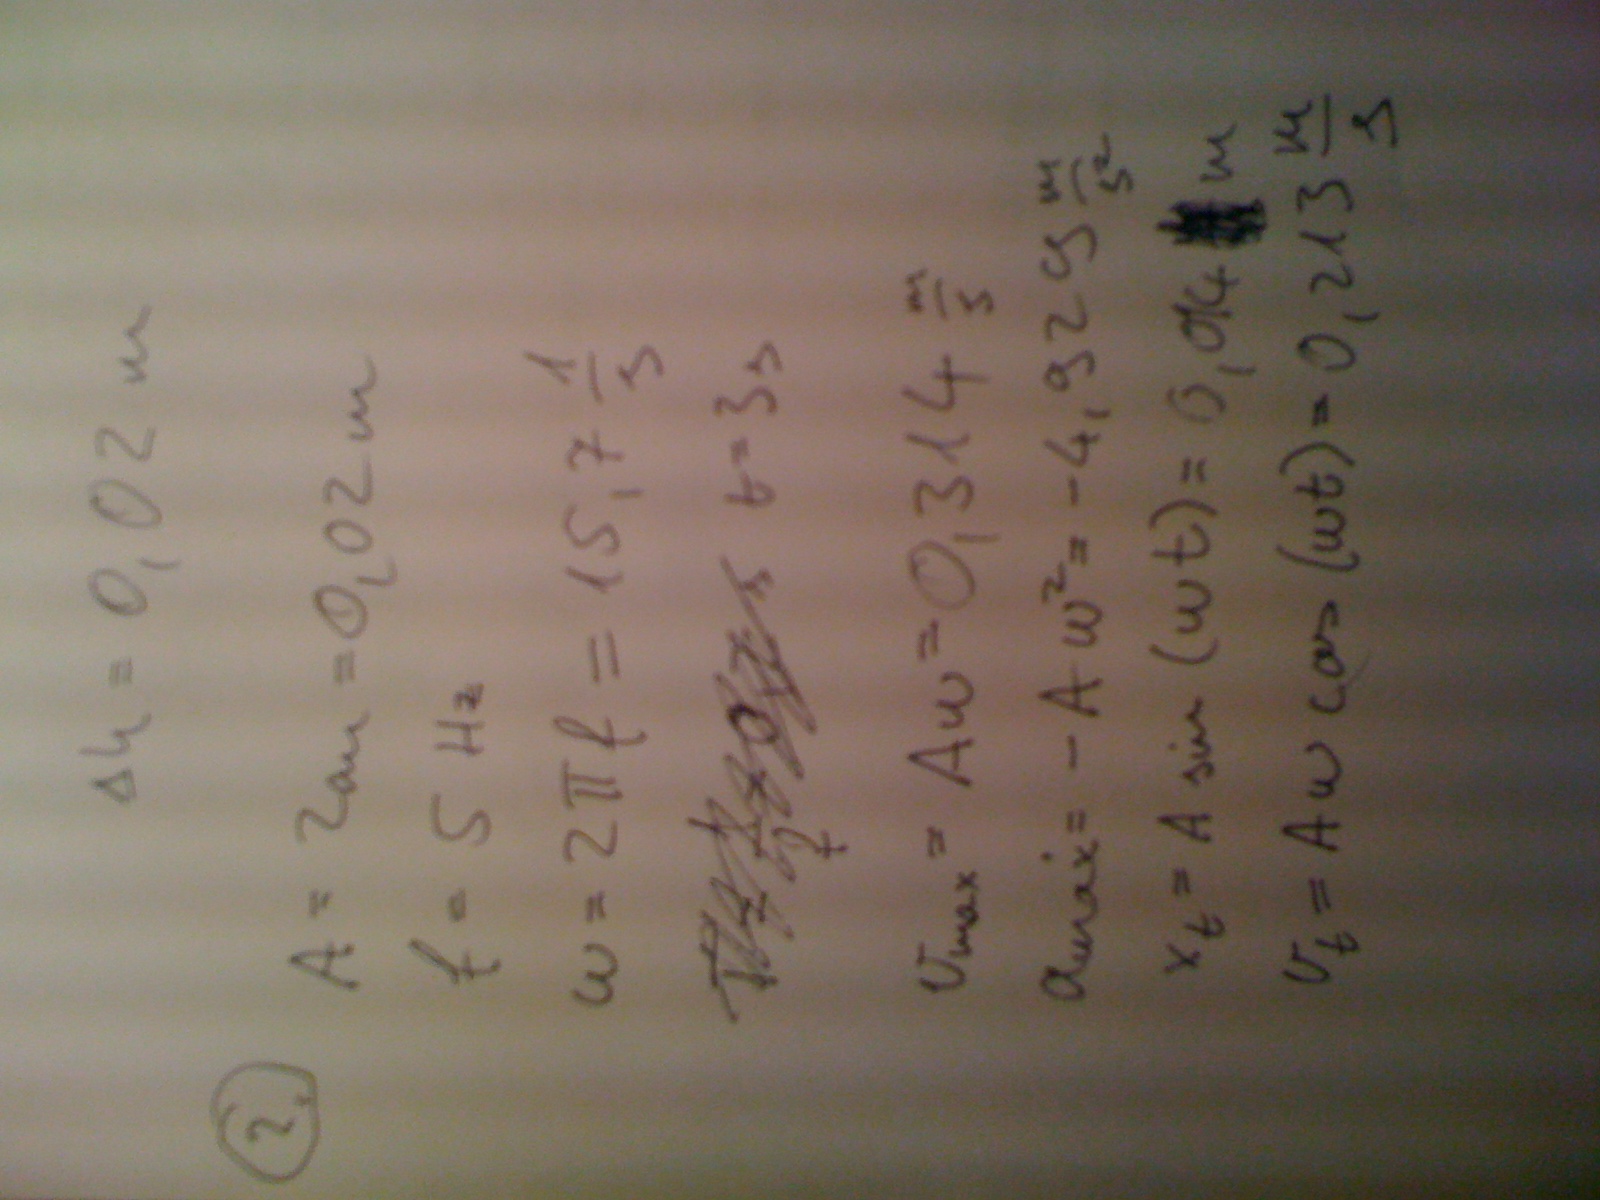 Δh = 0,02 m
2.
A = 2cm = 0,02 m
f = 5 Hz
ω = 2πf = 15,7 1/s
t = 3s
vmax = Aω = 0,314 m/s
amax = -Aω² = -4,929 m/s²
xt = A sin (ωt) = 0,014 m
vt = Aω cos (ωt) = 0,213 m/s